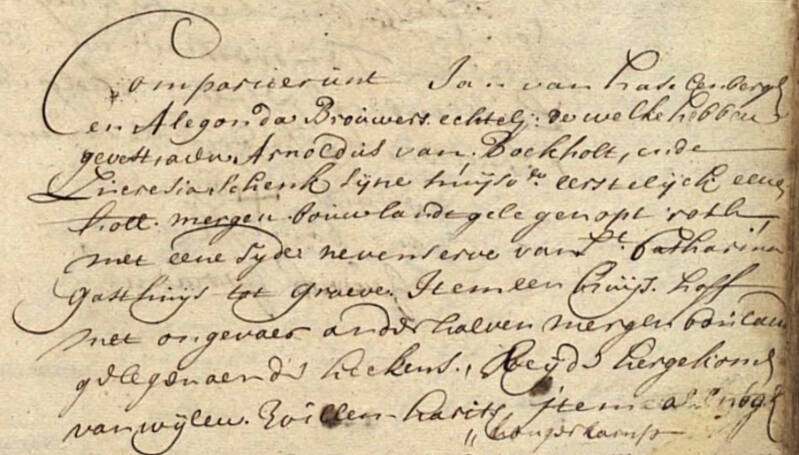 Comparuerunt Jan van hasselenbergh
en Alegonda Brouwers. echtel: de welke hebben
gevest, aen Arnoldus van Bockholt, ende
Theresia Schenk sijne huijsv: eerstelijck eene
holt. mergen bouwlandt gelegen opt roth,
met eene syde nevens erve van St. Catharina
Gasthuijs tot Graeve. Item een huijs. hoff
met ongevaer anderhalven mergen bouland
gelegen aen de heijde hergekomen
van wijlen. Willem Item